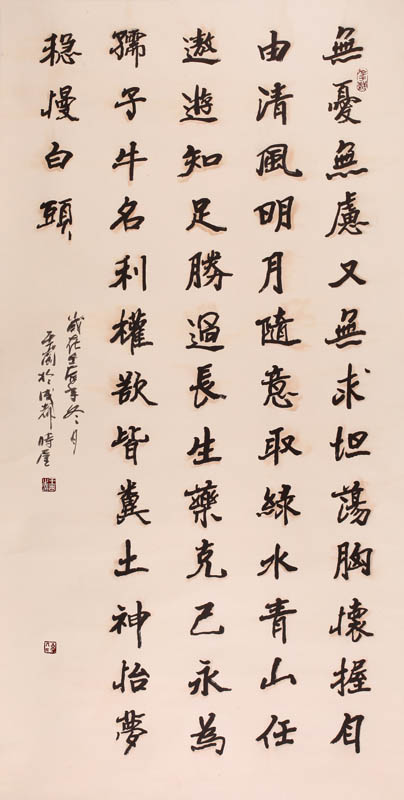 無憂無慮又無求坦蕩胸懷握自
由清風明月隨意取綠水青山任
遨遊知足勝過長生藥克己永為
孺子牛名利權欲皆糞土神怡夢
穩慢白頭
歲在壬辰年冬月
於成都時